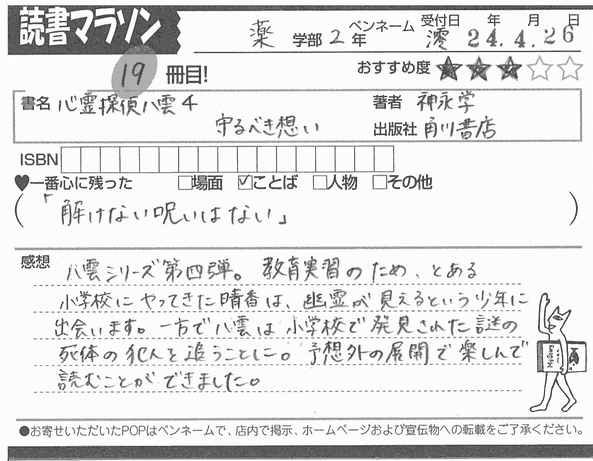 読書マラソン
薬 学部 2 年 ペンネーム 澪 受付日 24年 4月 26日
19 冊目!
おすすめ度 ★★★☆☆
書名 心霊探偵八雲4 守るべき想い
著者 神永学
出版社 角川書店
ISBN
♥一番心に残った □場面 ☑ことば □人物 □その他
(「解けない呪いはない」)
感想 八雲シリーズ第四弾。教育実習のため、とある
小学校にやってきた晴香は、幽霊が見えるという少年に
出会います。一方で八雲は小学校で発見された謎の
死体の犯人を追うことに。予想外の展開で楽しんで
読むことができました。
●お寄せいただいたPOPはペンネームで、店内で掲示、ホームページおよび宣伝物への転載をご了承ください。